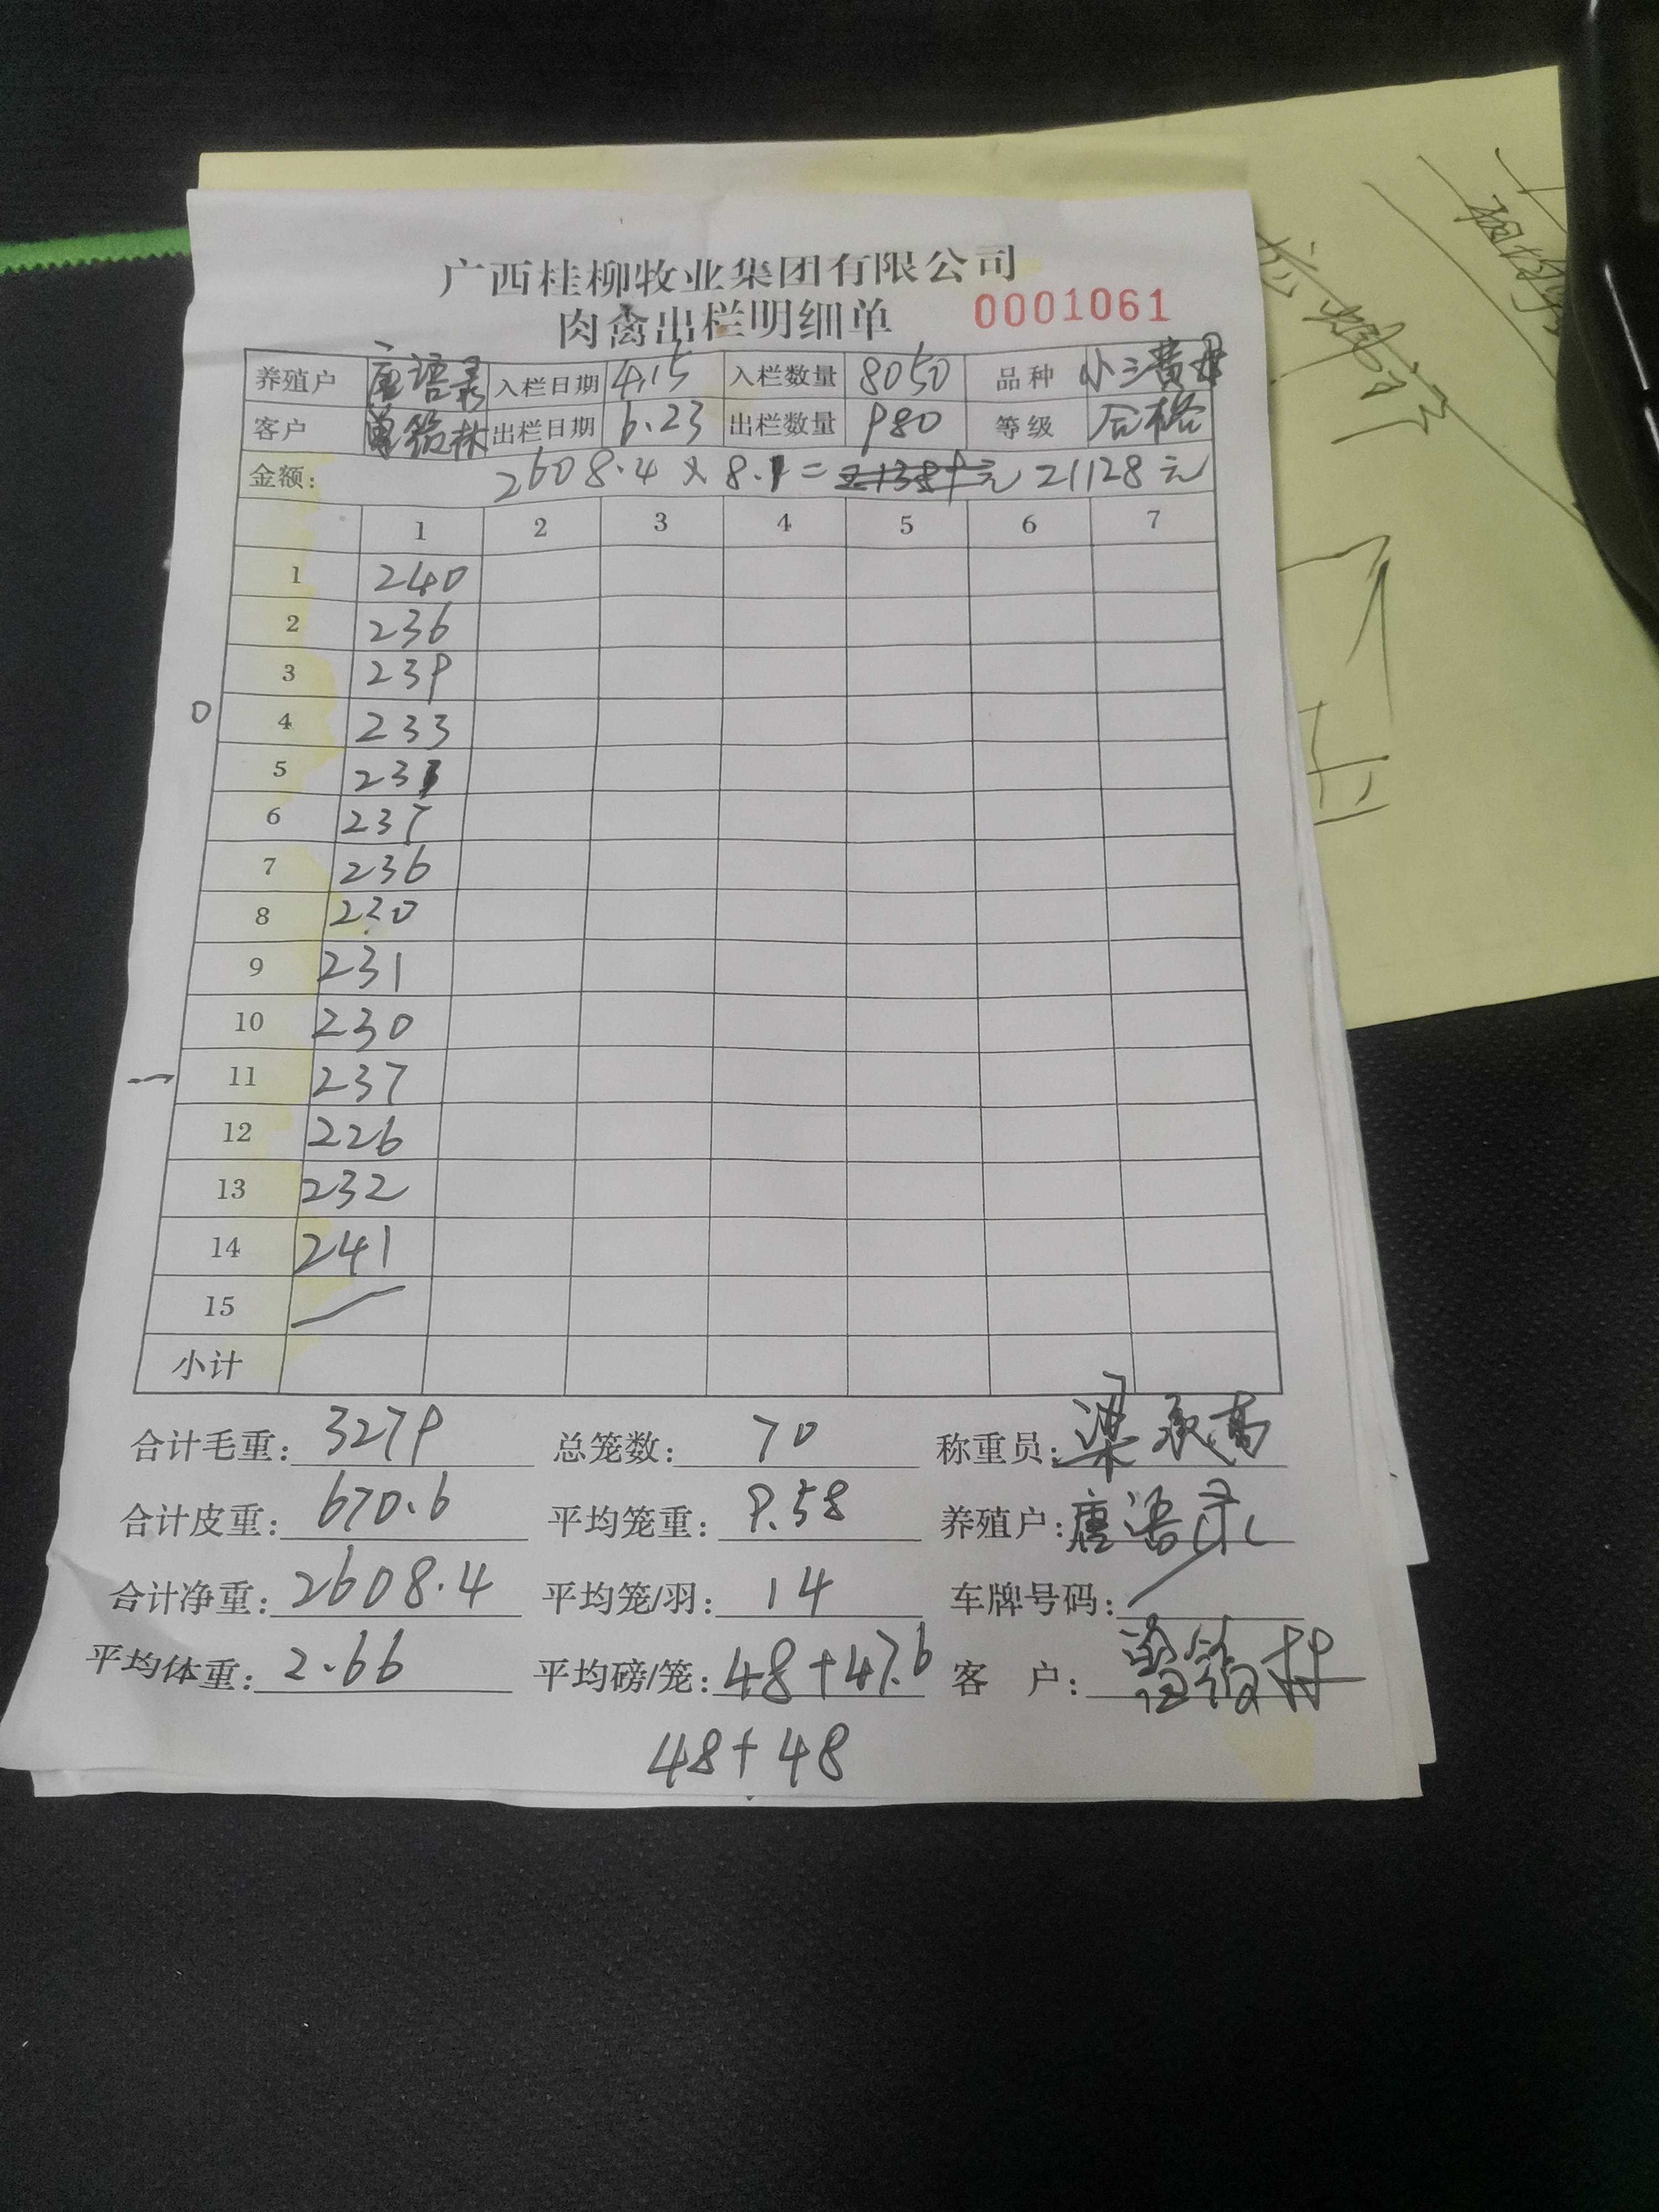 广西桂柳牧业集团有限公司
肉禽出栏明细单 0001061
养殖户 唐语录 入栏日期 4.15 入栏数量 8050 品种 小三黄母
客户 曾筑林 出栏日期 6.23 出栏数量 980 等级 合格
金额: 2608.4 × 8.1 = 元 21128元
1 2 3 4 5 6 7
1 240
2 236
3 239
4 233
5 231
6 237
7 236
8 230
9 231
10 230
11 237
12 226
13 232
14 241
15
小计
合计毛重: 3279 总笼数: 70 称重员: 梁承高
合计皮重: 670.6 平均笼重: 9.58 养殖户: 唐语录
合计净重: 2608.4 平均笼/羽: 14 车牌号码:
平均体重: 2.66 平均磅/笼: 48+47.6 客 户:
48+48